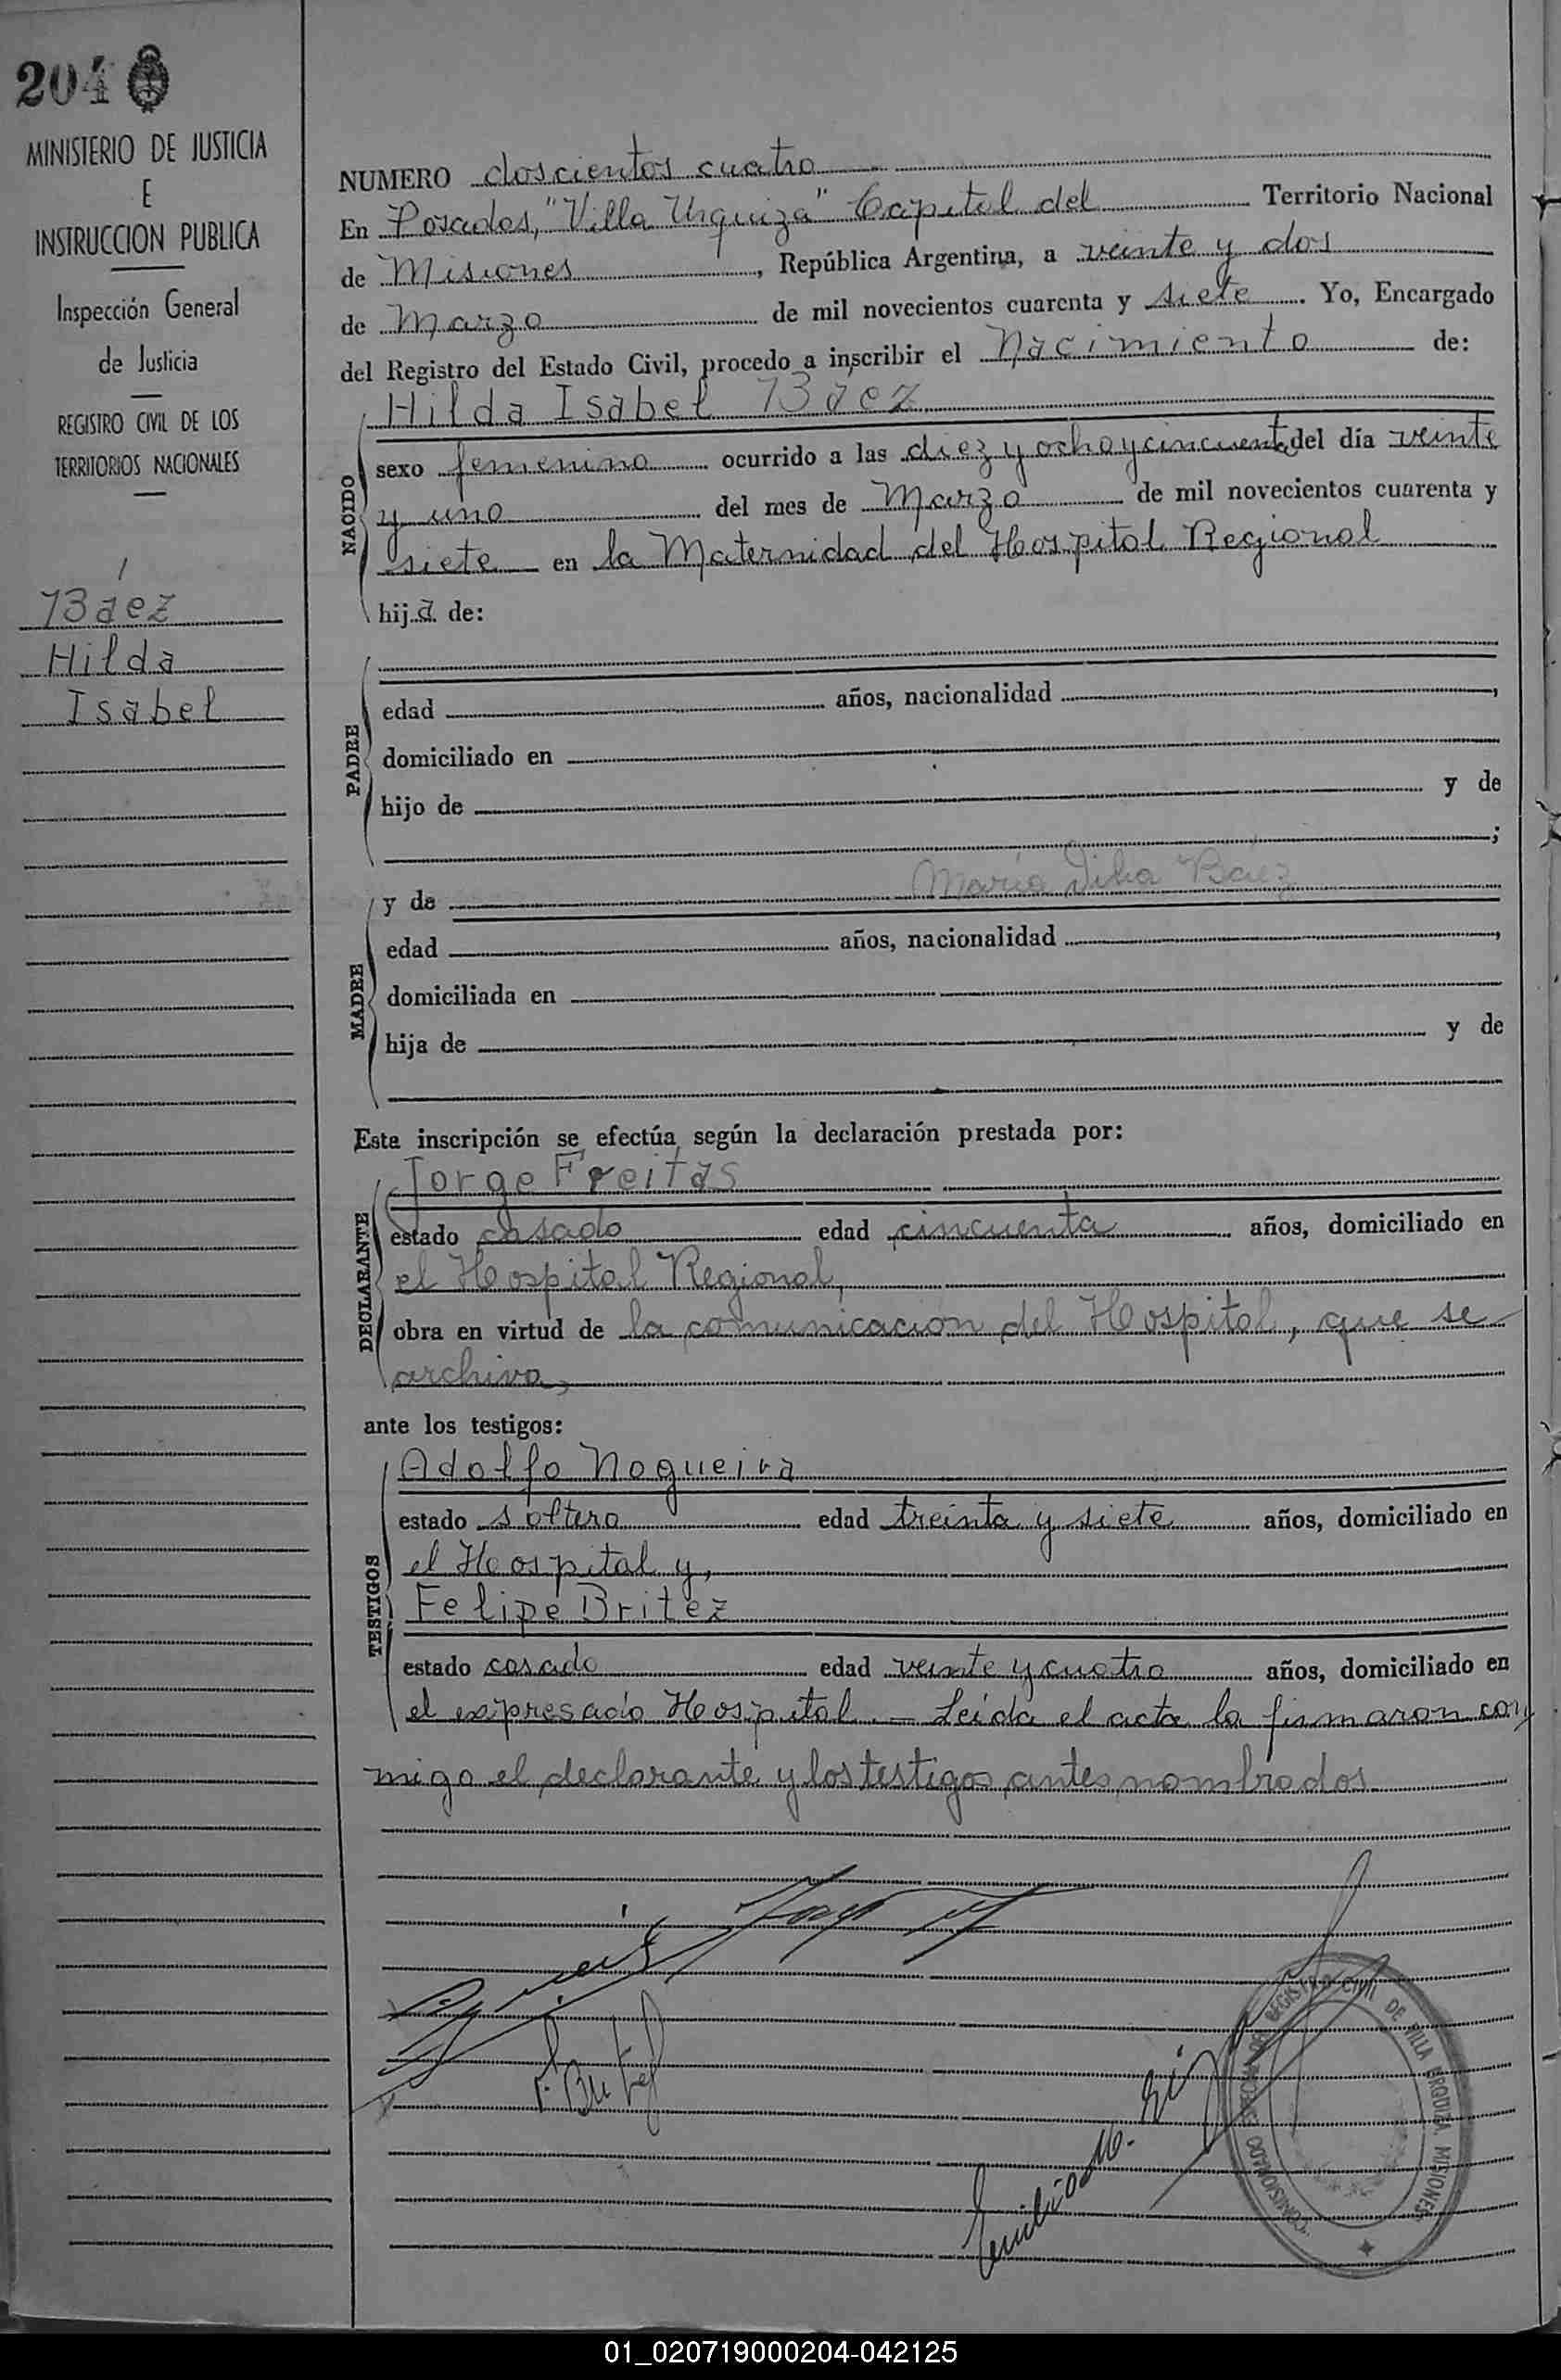 204
MINISTERIO DE JUSTICIA
E
INSTRUCCION PUBLICA
Inspección General
de Justicia
REGISTRO CIVIL DE LOS
TERRITORIOS NACIONALES
Báez
Hilda
Isabel
NUMERO doscientos cuatro
En Posadas, "Villa Urquiza" Capital del Territorio Nacional
de Misiones, República Argentina, a veinte y dos
de Marzo de mil novecientos cuarenta y siete. Yo, Encargado
del Registro del Estado Civil, procedo a inscribir el Nacimiento de:
Hilda Isabel Báez
NACIDO
sexo femenino ocurrido a las diez y ocho y cincuenta del día veinte
y uno del mes de Marzo de mil novecientos cuarenta y
siete en la Maternidad del Hospital Regional
hija de:
PADRE
edad años, nacionalidad ,
domiciliado en
hijo de y de
;
MADRE
y de María Báez
edad años, nacionalidad ,
domiciliada en
hija de y de
Esta inscripción se efectúa según la declaración prestada por:
DECLARANTE
Jorge Freitas
estado casado edad cincuenta años, domiciliado en
el Hospital Regional,
obra en virtud de la comunicación del Hospital, que se
archiva,
ante los testigos:
TESTIGOS
Adolfo Nogueira
estado soltero edad treinta y siete años, domiciliado en
el Hospital y,
Felipe Britez
estado casado edad veinte y cuatro años, domiciliado en
el expresado Hospital. — Leída el acta la firmaron con
migo el declarante y los testigos antes nombrados
F. Britez
Emilio M.
REGISTRO CIVIL DE VILLA URQUIZA. MISIONES
01_020719000204-042125